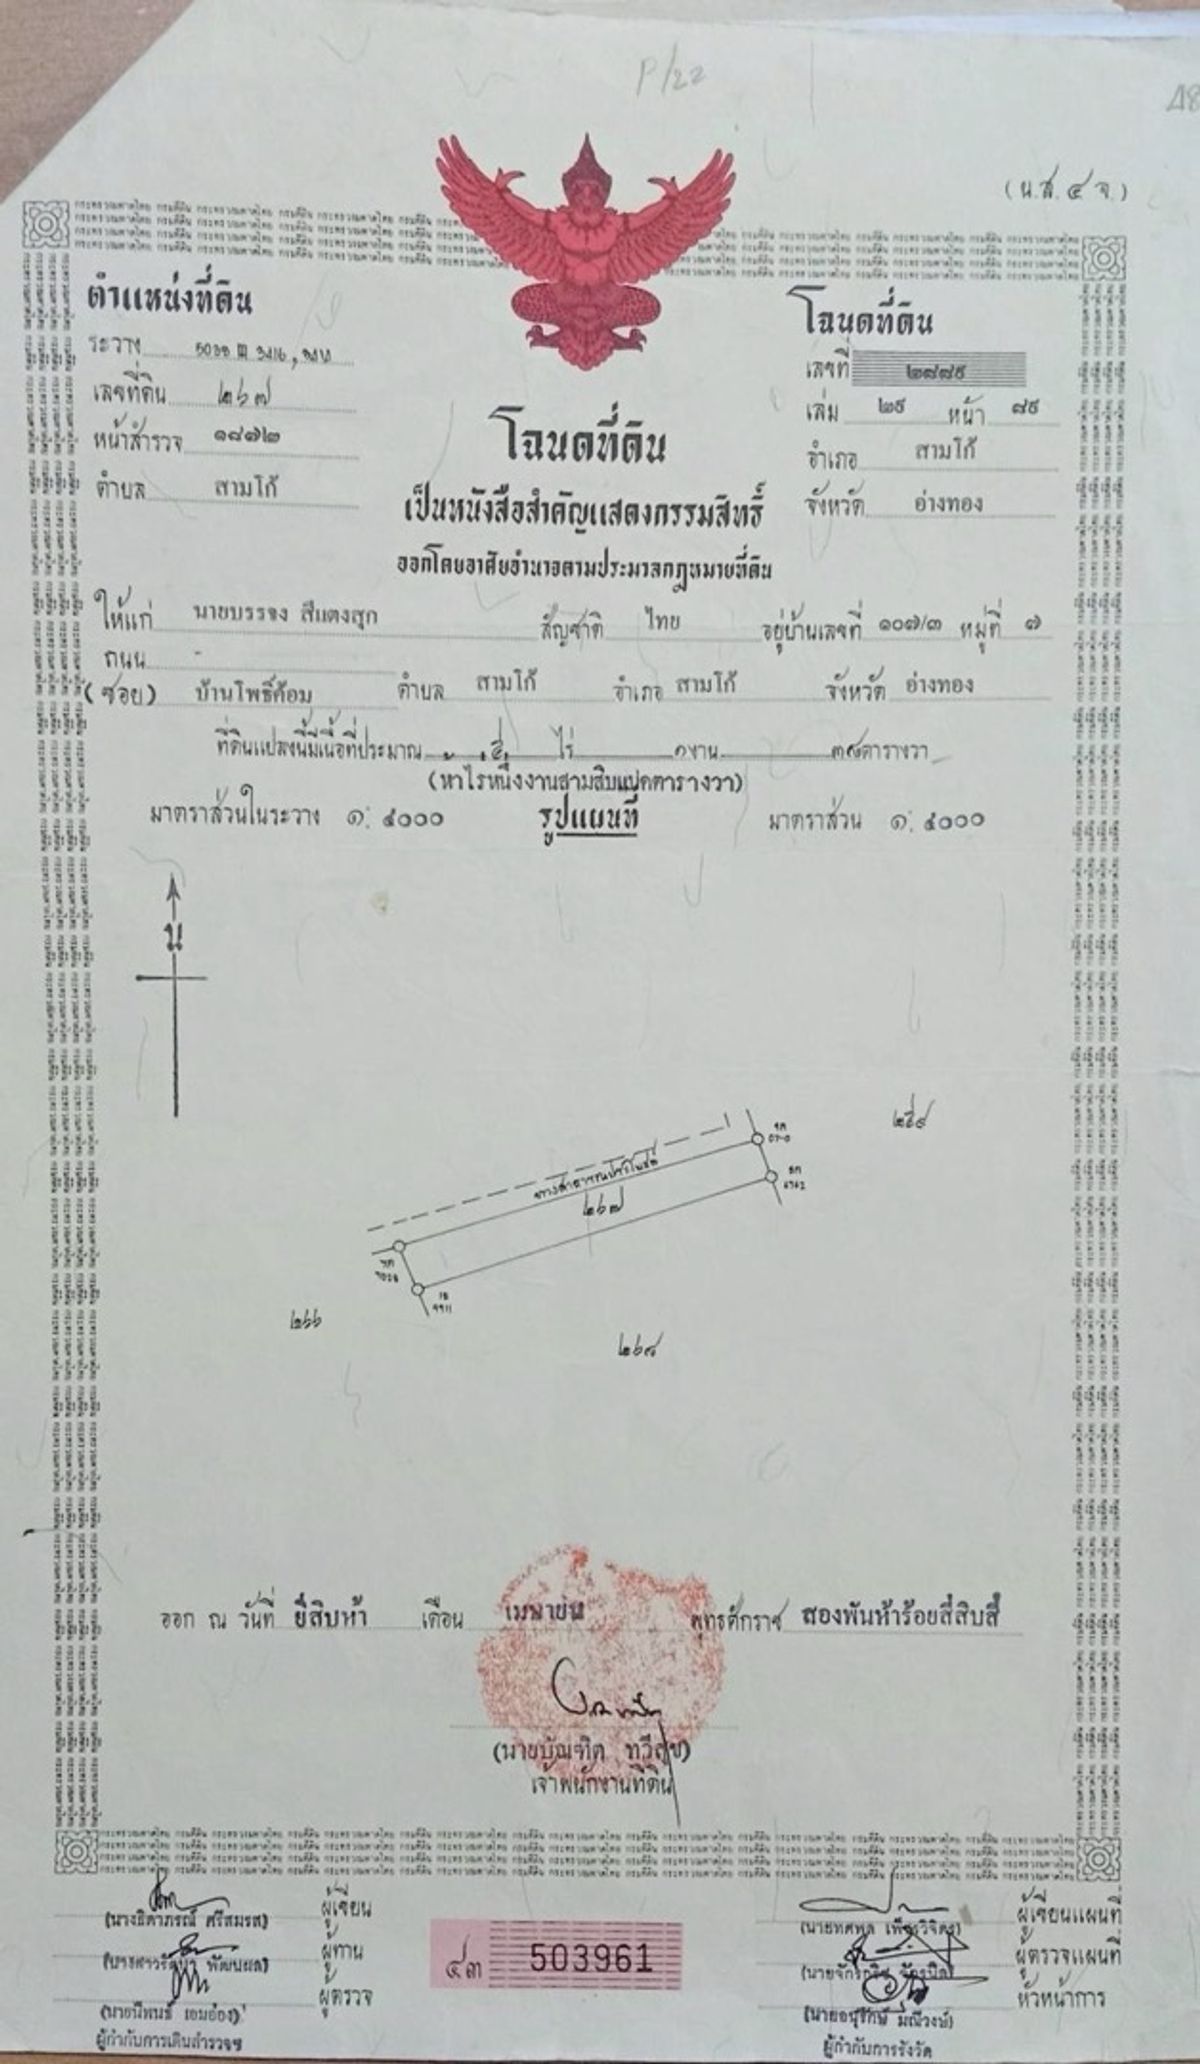 P/22
(น.ส.๔ จ.)
ตำแหน่งที่ดิน
ระวาง
เลขที่ดิน ๒๖๗
หน้าสำรวจ ๑๘๗๒
ตำบล สามโก้
โฉนดที่ดิน
เลขที่
เล่ม ๒๙ หน้า ๘๙
อำเภอ สามโก้
จังหวัด อ่างทอง
โฉนดที่ดิน
เป็นหนังสือสำคัญแสดงกรรมสิทธิ์
ออกโดยอาศัยอำนาจตามประมวลกฎหมายที่ดิน
ให้แก่ นายบรรจง สีแตงสุก สัญชาติ ไทย อยู่บ้านเลขที่ ๑๐๗/๓ หมู่ที่ ๗
ถนน -
(ซอย) บ้านโพธิ์ค้อม ตำบล สามโก้ อำเภอ สามโก้ จังหวัด อ่างทอง
ที่ดินแปลงนี้มีเนื้อที่ประมาณ ๕ ไร่ ๑ งาน ๓๘ ตารางวา
(ห้าไร่หนึ่งงานสามสิบแปดตารางวา)
มาตราส่วนในระวาง ๑: ๔๐๐๐ รูปแผนที่ มาตราส่วน ๑: ๔๐๐๐
น
๒๕๙
ทางสาธารณประโยชน์
๒๖๗
๒๖๖
๒๖๘
ออก ณ วันที่ ยี่สิบห้า เดือน เมษายน พุทธศักราช สองพันห้าร้อยสี่สิบสี่
(นายบัณฑิต ทวีสุข)
เจ้าพนักงานที่ดิน
(นางธิดาภรณ์ ศรีสมรส) ผู้เขียน
ผู้ทาน
ผู้ตรวจ
ผู้กำกับการเดินสำรวจฯ
๔๓ 503961
ผู้เขียนแผนที่
ผู้ตรวจแผนที่
(นายอนุรักษ์ มณีวงษ์) หัวหน้าการ
ผู้กำกับการรังวัด